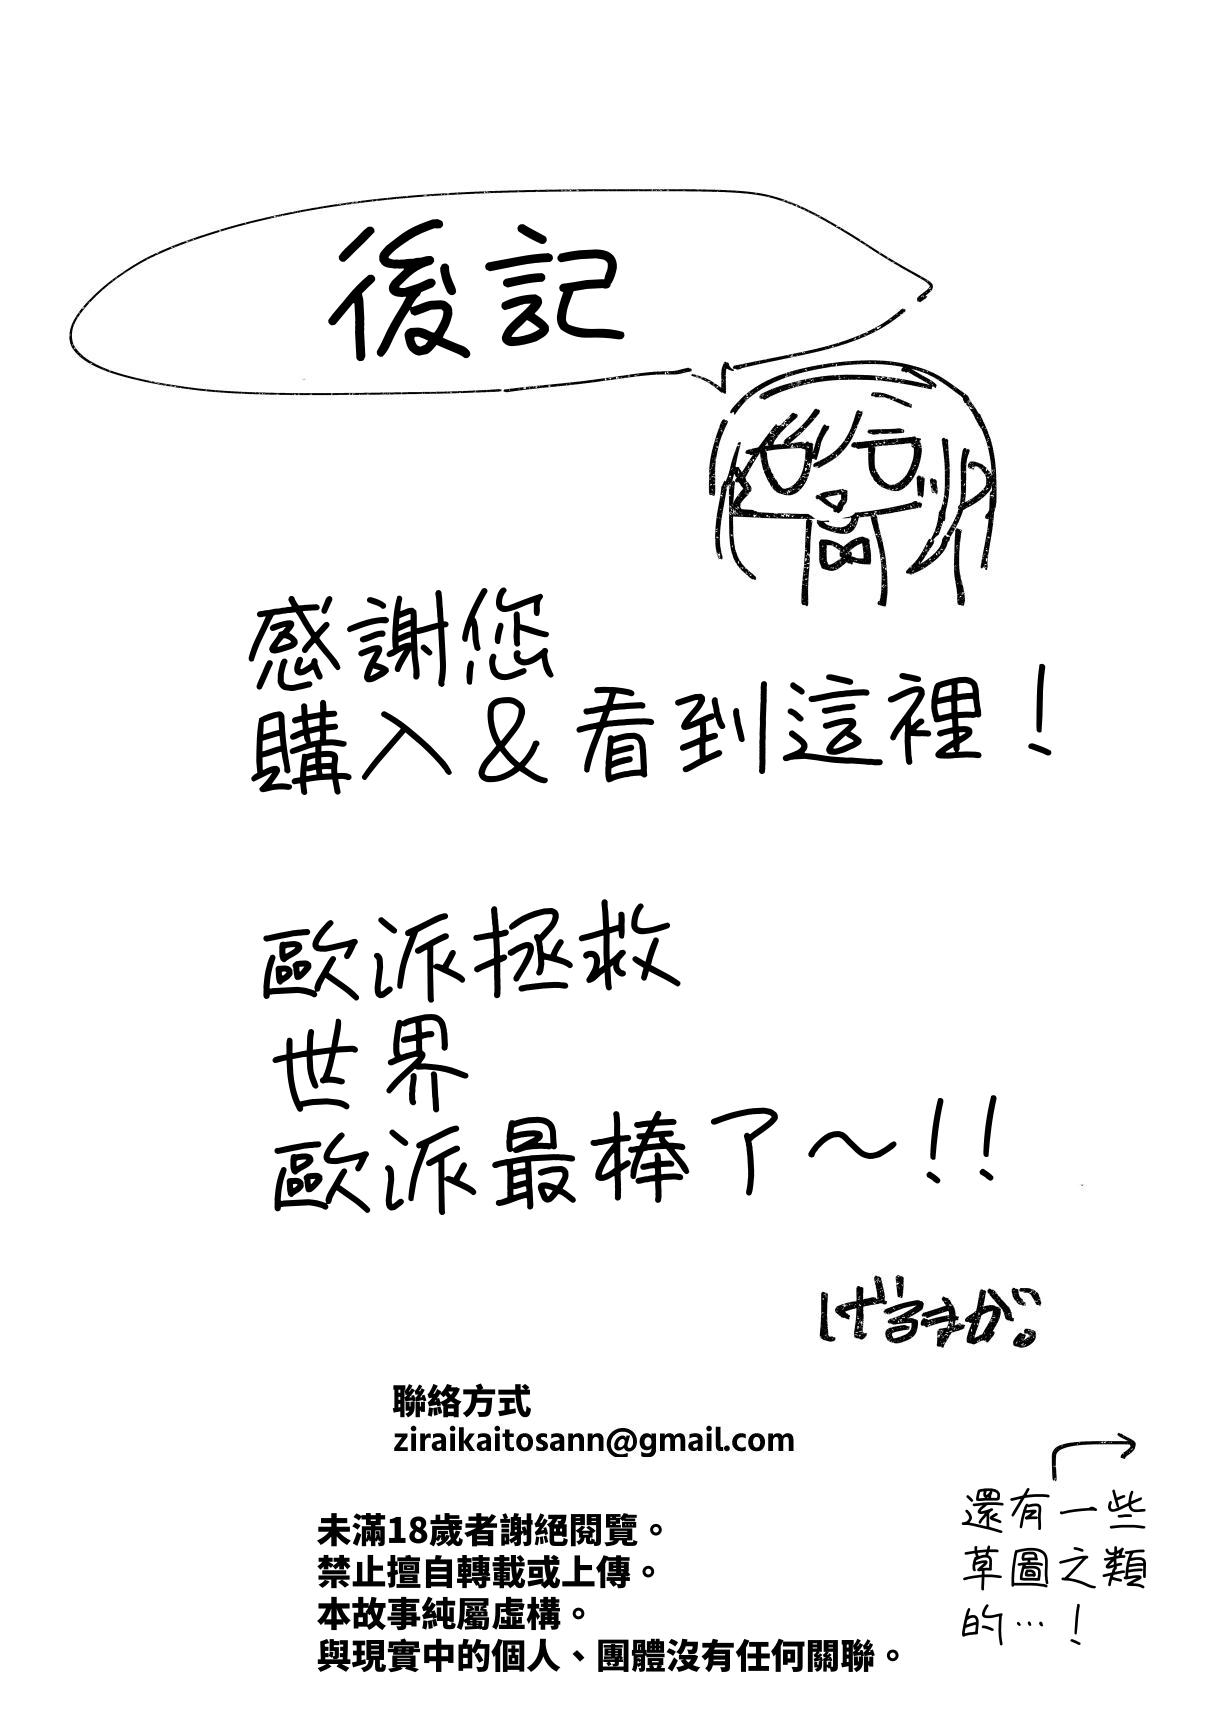 後記
感謝您
購入&看到這裡！
歐派拯救
世界
歐派最棒了～！！
げるまが。
聯絡方式
ziraikaitosann@gmail.com
未滿18歲者謝絕閱覽。
禁止擅自轉載或上傳。
本故事純屬虛構。
與現實中的個人、團體沒有任何關聯。
還有一些
草圖之類
的…！